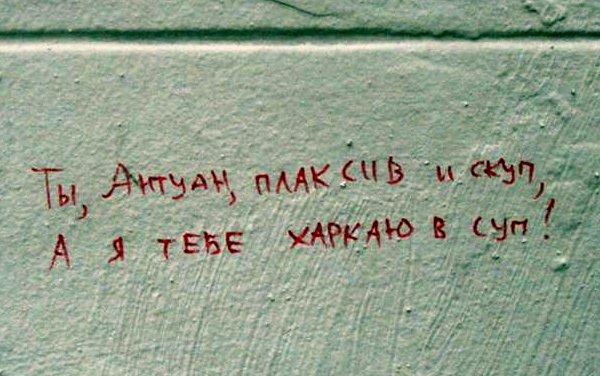 Ты, Антуан, плаксив и скуп,
А я тебе харкаю в суп!